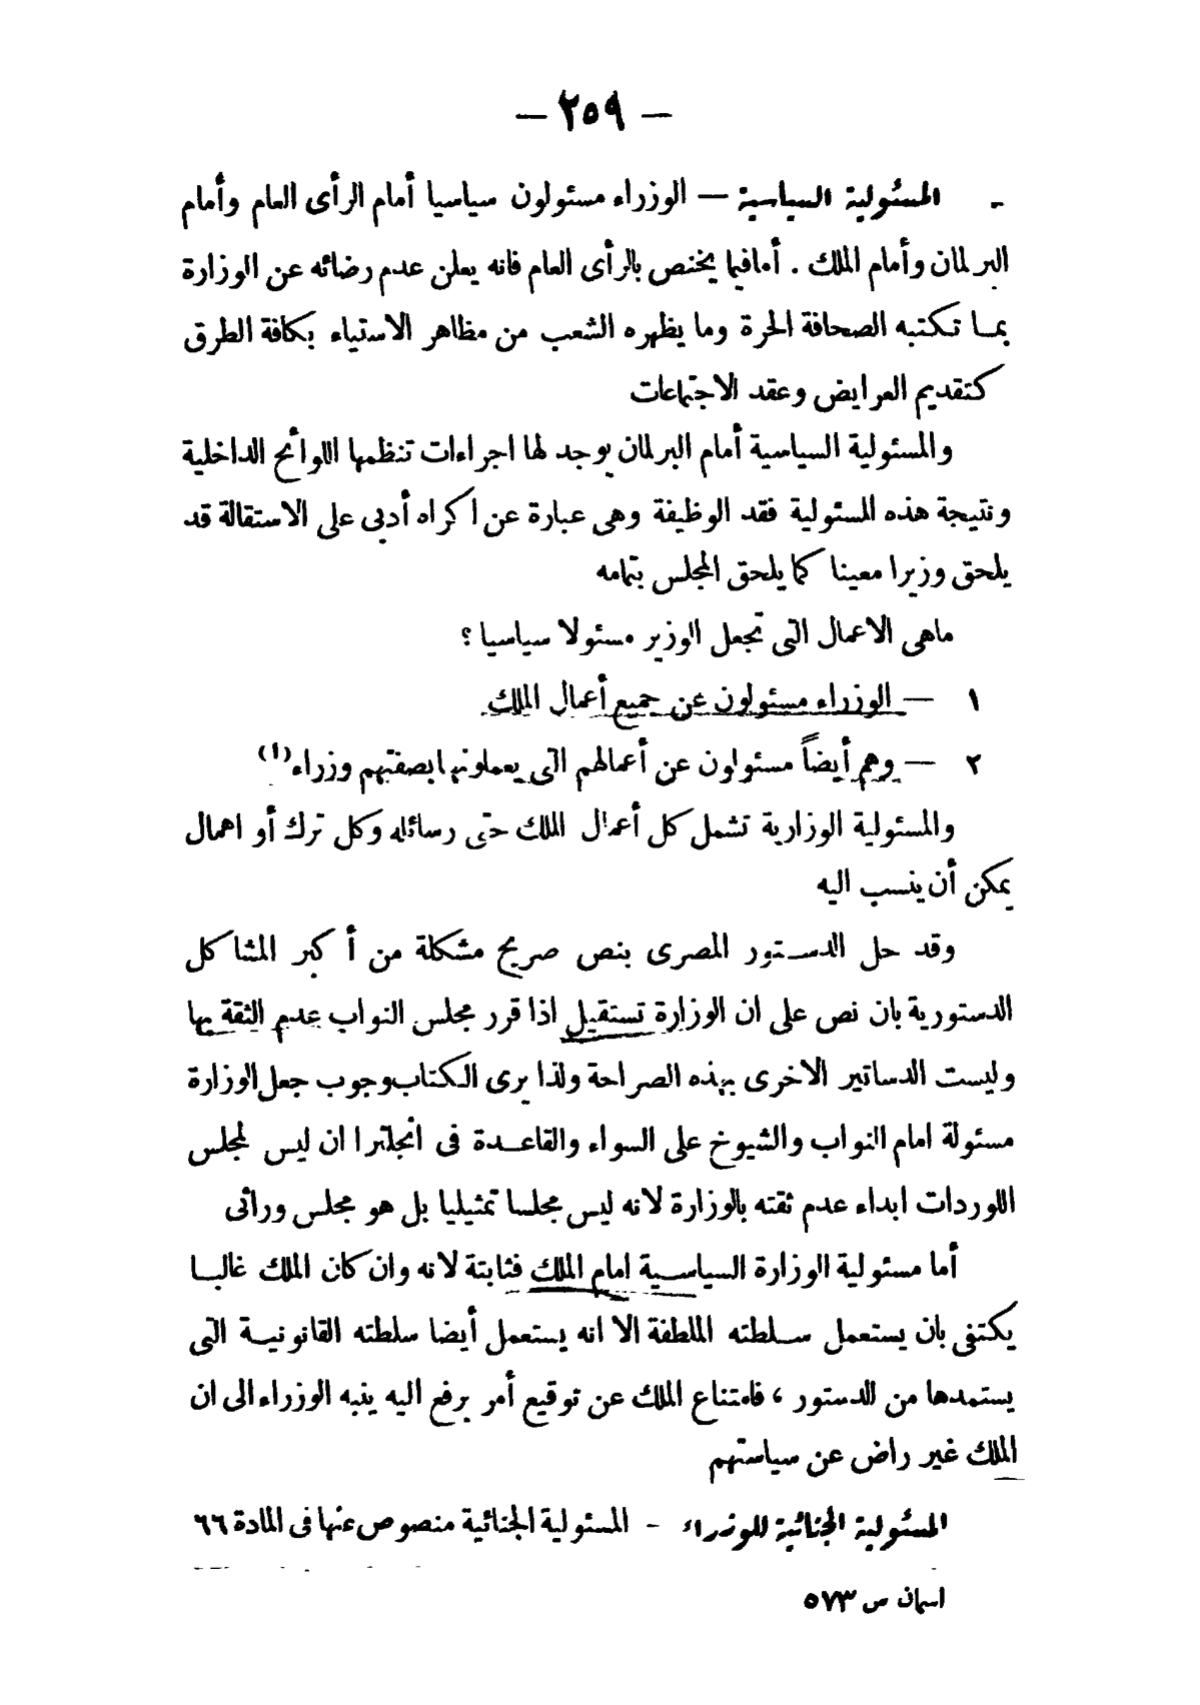 — ٢٥٩ —
- المسئولية السياسية — الوزراء مسئولون سياسيا أمام الرأى العام وأمام
البرلمان وأمام الملك . أمافيما يختص بالرأى العام فانه يعلن عدم رضائه عن الوزارة
بمـا تكتبه الصحافة الحرة وما يظهره الشعب من مظاهر الاستياء بكافة الطرق
كتقديم العرايض وعقد الاجتماعات
والمسئولية السياسية أمام البرلمان يوجد لها اجراءات تنظمها اللوائح الداخلية
ونتيجة هذه المسئولية فقد الوظيفة وهى عبارة عن اكراه أدبى على الاستقالة قد
يلحق وزيرا معينا كما يلحق المجلس بتمامه
ماهى الاعمال التى تجعل الوزير مسئولا سياسيا ؟
١ — الوزراء مسئولون عن جميع أعمال الملك
٢ — وهم أيضاً مسئولون عن أعمالهم التى يعملونها بصفتهم وزراء (١)
والمسئولية الوزارية تشمل كل أعمال الملك حتى رسائله وكل ترك أو اهمال
يمكن أن ينسب اليه
وقد حل الدسـتور المصرى بنص صريح مشكلة من أكبر المشاكل
الدستورية بان نص على ان الوزارة تستقيل اذا قرر مجلس النواب عدم الثقة بها
وليست الدساتير الاخرى بهذه الصراحة ولذا يرى الكتاب وجوب جعل الوزارة
مسئولة امام النواب والشيوخ على السواء والقاعـدة فى انجلترا ان ليس لمجلس
اللوردات ابداء عدم ثقته بالوزارة لانه ليس مجلسا تمثيليا بل هو مجلس وراثى
أما مسئولية الوزارة السياسـية امام الملك فثابتة لانه وان كان الملك غالبـا
يكتفى بان يستعمل سـلطته الملطفة الا انه يستعمل أيضا سلطته القانونيـة التى
يستمدها من الدستور ، فامتناع الملك عن توقيع أمر يرفع اليه ينبه الوزراء الى ان
الملك غير راض عن سياستهم
المسئولية الجنائية للوزراء - المسئولية الجنائية منصوص عنها فى المادة ٦٦
اسمان ص ٥٧٣